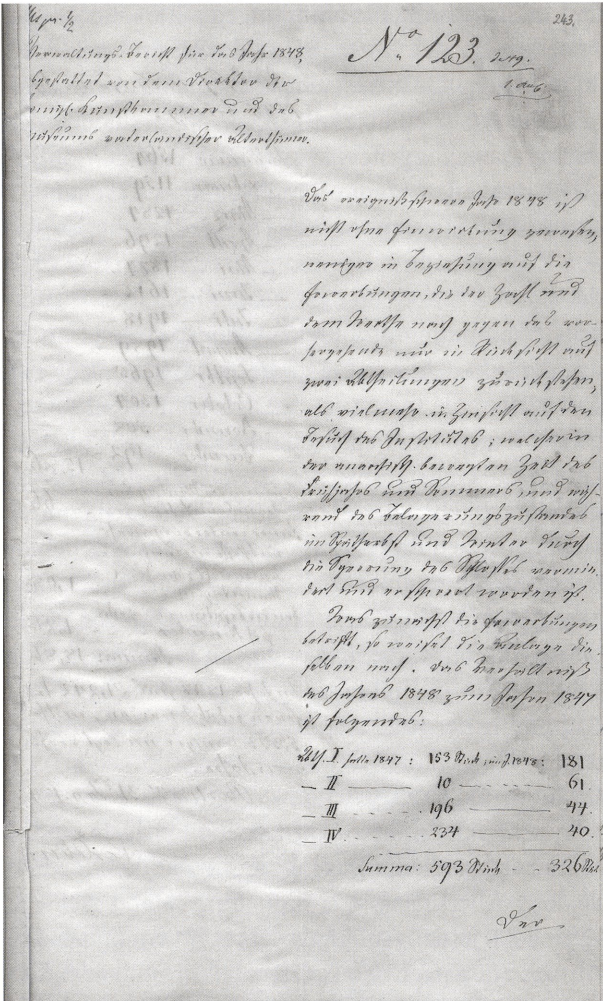 243.
No. 123.
Verwaltungs-Bericht für das Jahr 1848,
abgestattet von dem Direktor der
Königl. Kunstkammer und des
Museums vaterländischer Alterthümer.
Das ereignißschwere Jahr 1848 ist
nicht ohne Einwirkung gewesen,
weniger in Beziehung auf die
Erwerbungen, die der Zahl und
dem Werthe nach gegen das vor-
hergehende nur in Rücksicht auf
zwei Abtheilungen zurückstehen,
als vielmehr in Hinsicht auf den
Besuch des Institutes; welcher in
der anarchisch bewegten Zeit des
Frühjahrs und Sommers, und wäh-
rend des Belagerungszustandes
im Spätherbst und Winter durch
die Sperrung des Schlosses vermin-
dert und erschwert worden ist.
Was zunächst die Erwerbungen
betrifft, so weiset die Anlage die-
selben nach. Das Verhältniß
des Jahres 1848 zum Jahre 1847
ist folgendes:
Abth. I hatte 1847: 153 Stück, im J. 1848: 181
— II — 10 — 61.
— III 196 — 44.
— IV 234 — 40.
Summa: 593 Stück - - 326 Stck.
Der